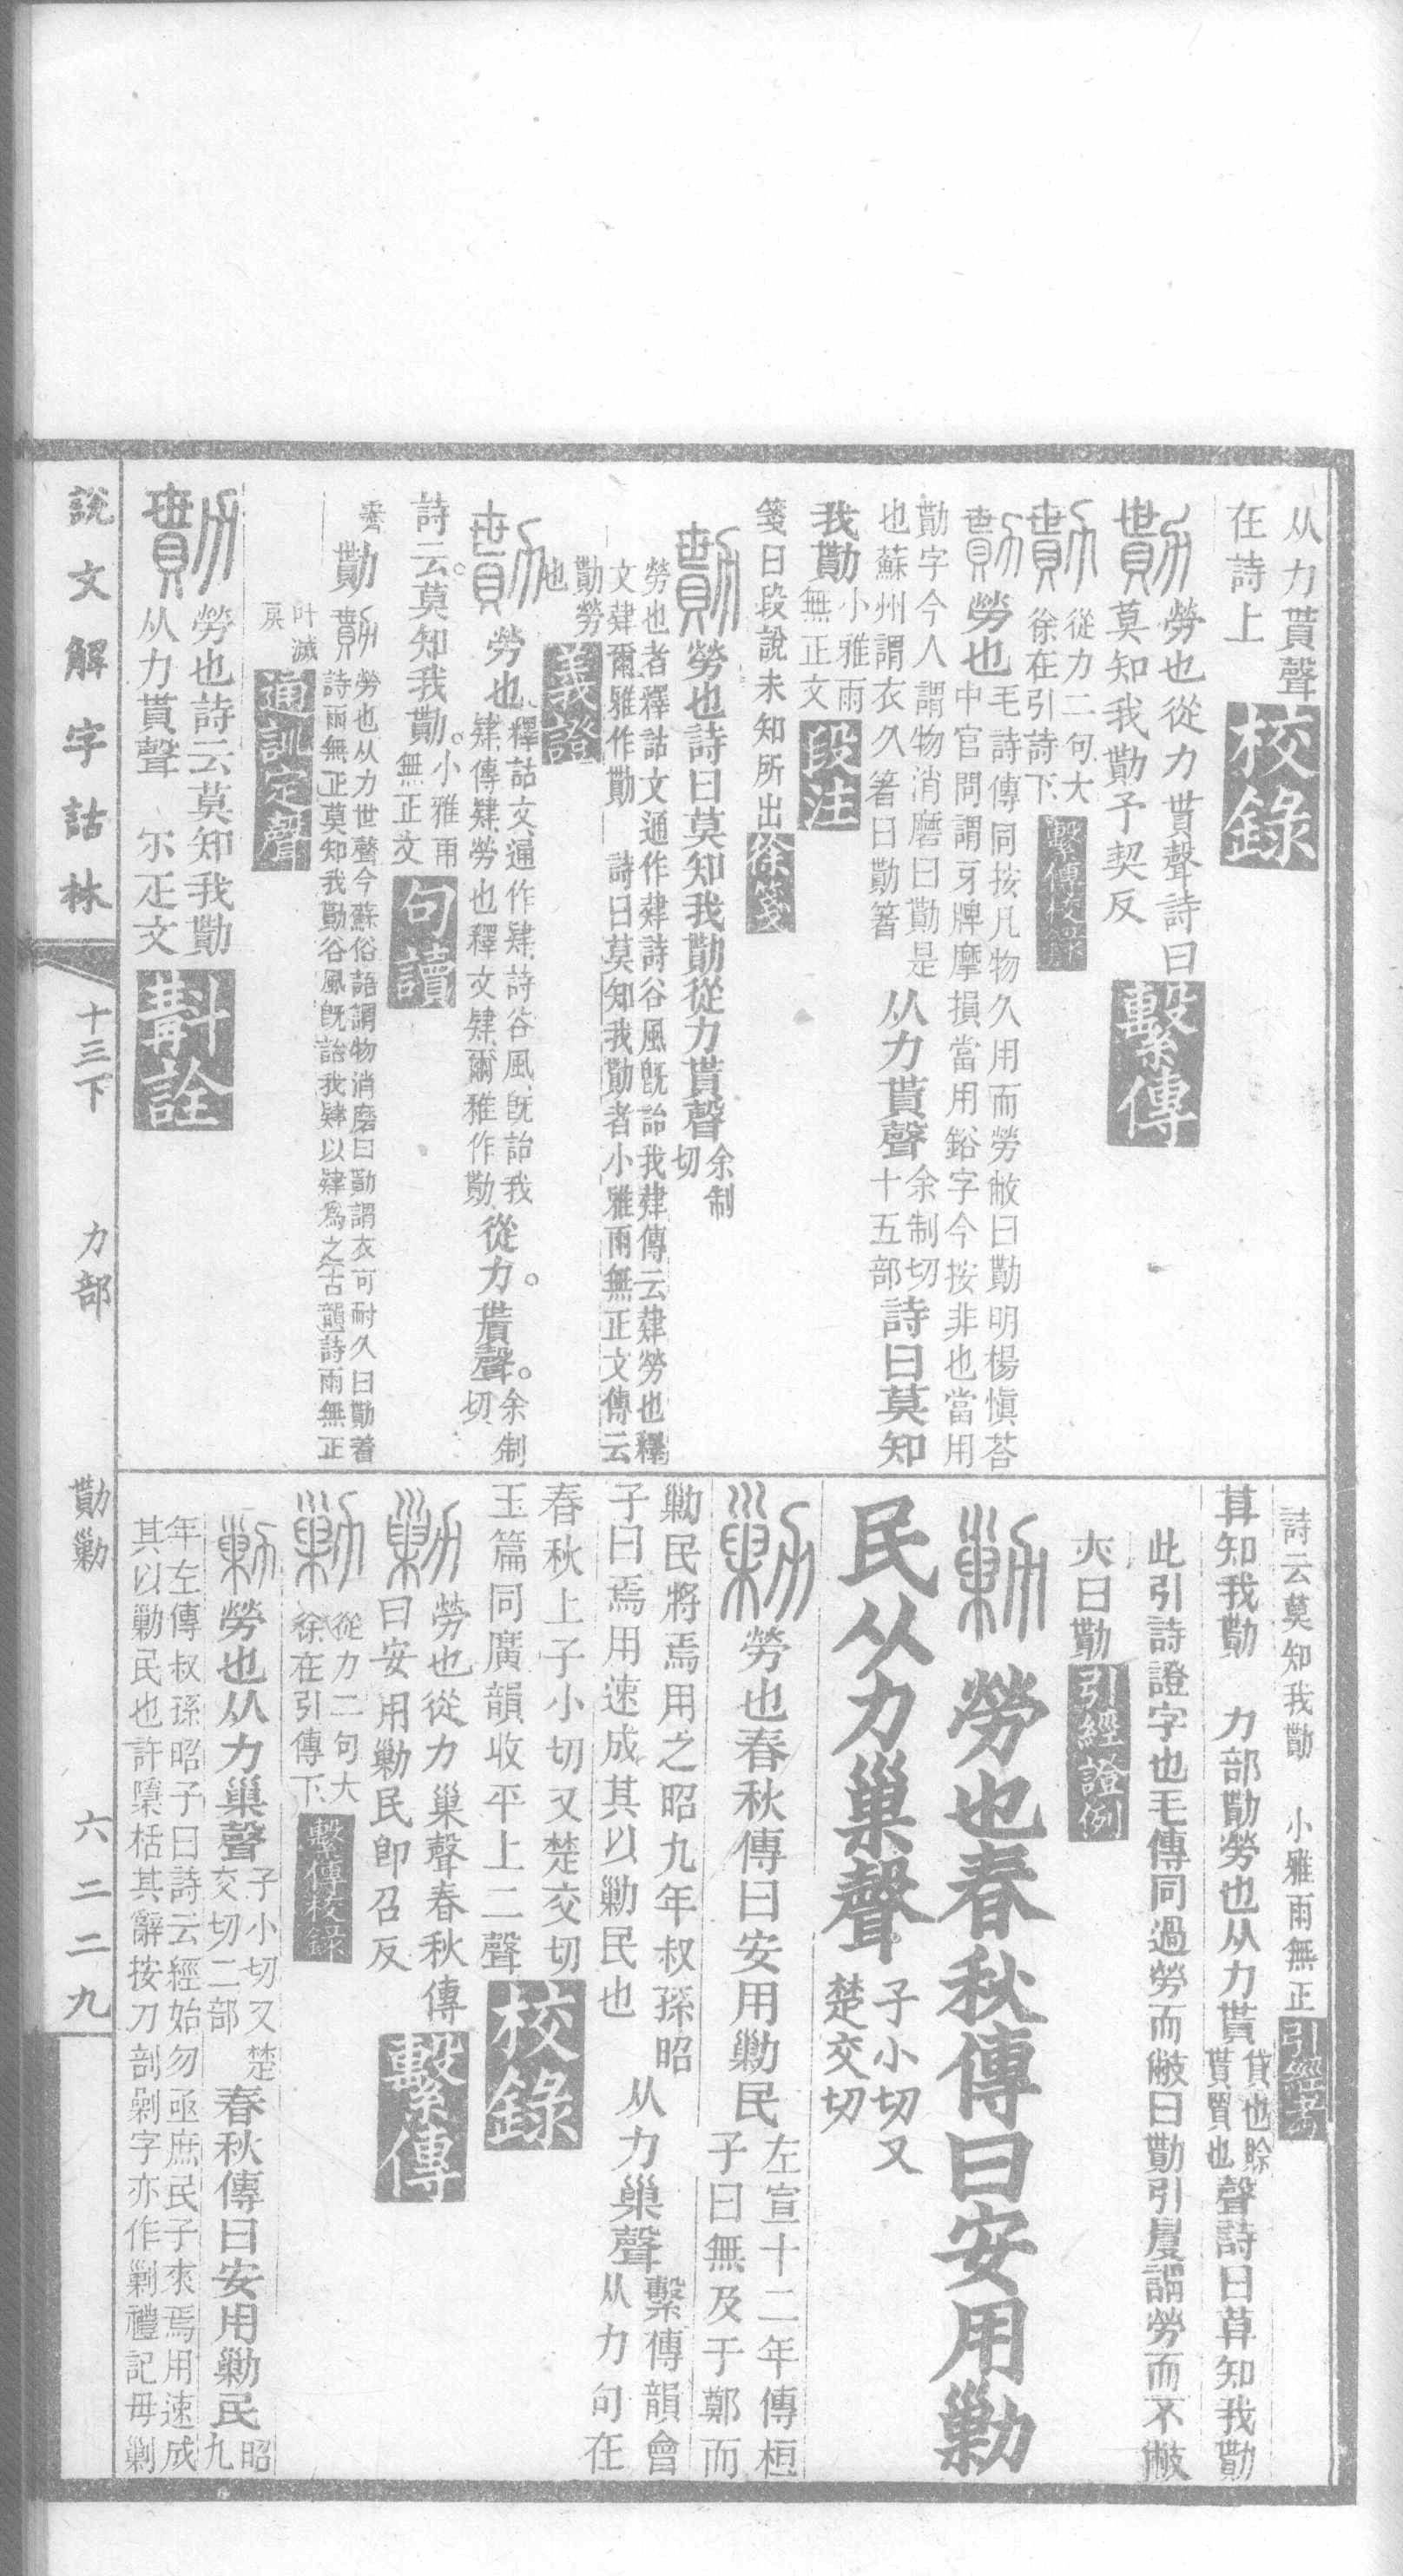 从力貰聲
在詩上 校錄
勩 勞也從力貰聲詩曰
莫知我勩予契反 繫傳
勩 從力二句大
徐在引詩下 繫傳校錄
勩 勞也 毛詩傳同按凡物久用而勞敝曰勩明楊愼荅
中官問謂牙牌摩損當用鋊字今按非也當用
勩字今人謂物消磨曰勩是
也蘇州謂衣久著曰勩箸 从力貰聲 余制切
十五部 詩曰莫知
我勩 小雅雨
無正文 段注
箋曰段說未知所出 徐箋
勩 勞也詩曰莫知我勩從力貰聲 余制
切
勞也者釋詁文通作肄詩谷風旣詒我肄傳云肄勞也釋
文肄爾雅作勩 詩曰莫知我勩者小雅雨無正文傳云
勩勞
也 義證
勩 勞也 釋詁文通作肄詩谷風旣詒我
肄傳肄勞也釋文肄爾雅作勩 從力。貰聲。 余制
切
詩云。莫知我勩。 小雅雨
無正文 句讀
勩 勩 勞也从力世聲今蘇俗語謂物消磨曰勩謂衣可耐久曰勩著
詩雨無正莫知我勩谷風旣詒我肄以肄爲之 古韻 詩雨無正
叶滅
戾 通訓定聲
勩 勞也詩云莫知我勩
从力貰聲 尒疋文 斠詮
詩云莫知我勩 小雅雨無正 引經考
莫知我勩 力部勩勞也从力貰 貸也賒
貰買也 聲詩曰莫知我勩
此引詩證字也毛傳同過勞而敝曰勩引㞞謂勞而不敝
夾曰勩 引經證例
勦 勞也春秋傳曰安用勦
民从力巢聲 子小切又
楚交切
勦 勞也春秋傳曰安用勦民 左宣十二年傳桓
子曰無及于鄭而
勦民將焉用之昭九年叔孫昭
子曰焉用速成其以勦民也 从力巢聲 繫傳韻會
从力句在
春秋上子小切又楚交切
玉篇同廣韻收平上二聲 校錄
勦 勞也從力巢聲春秋傳
曰安用勦民卽召反 繫傳
勦 從力二句大
徐在引傳下 繫傳校錄
勦 勞也从力巢聲 子小切又楚
交切二部 春秋傳曰安用勦民 昭
九
年左傳叔孫昭子曰詩云經始勿亟庶民子來焉用速成
其以勦民也許檃栝其辭按刀部剿字亦作剿禮記毋剿
說文解字詁林
十三下
力部
勩勦
六二二九